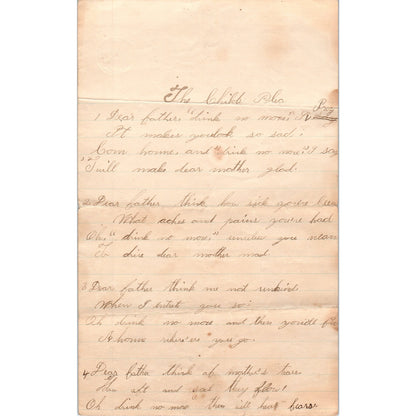 The Childs Plea
1 Dear father, "drink no more" I Pray
It makes you look so sad!
Com home, and "drink no more" I say
'T will make dear mother glad.
2 Dear father think how sick you've been
What aches and pains you've had
Oh "drink no more," unless you mean
To drive dear mother mad.
3 Dear father think me not unkind
When I intreat you so!
Oh drink no more and then you'll
A home where'er you go.
4 Dear father think of mother's tears
How oft and sad they flow!
Oh drink no more then will her fears